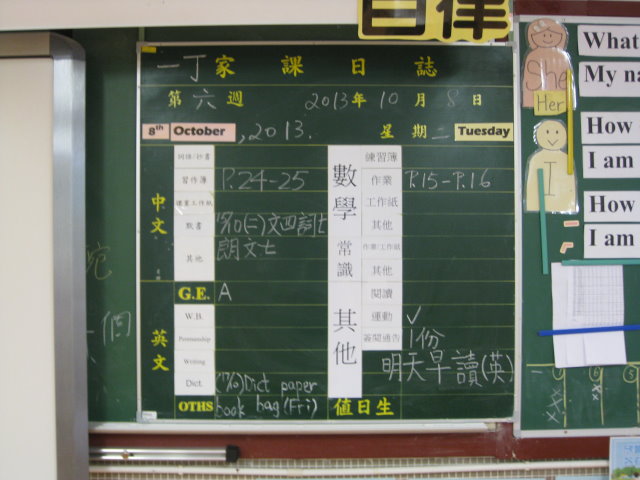 自律
一丁家課日誌
第六週 2013年10月8日
8th October, 2013. 星期二 Tuesday
中文
習作簿 P.24-25
默書
其他 朗文七
G.E. A
英文
W.B.
Penmanship
Writing
Dict. (17/10) Dict paper
OTHS book bag (Fri)
數學
練習簿
作業 P.15-P.16
工作紙
其他
常識
作業/工作紙
其他
其他
閱讀
運動 ✓
簽閱通告 1份
明天早讀(英)
值日生
一個
What
She
My na
Her
How
I
I am
How
I am